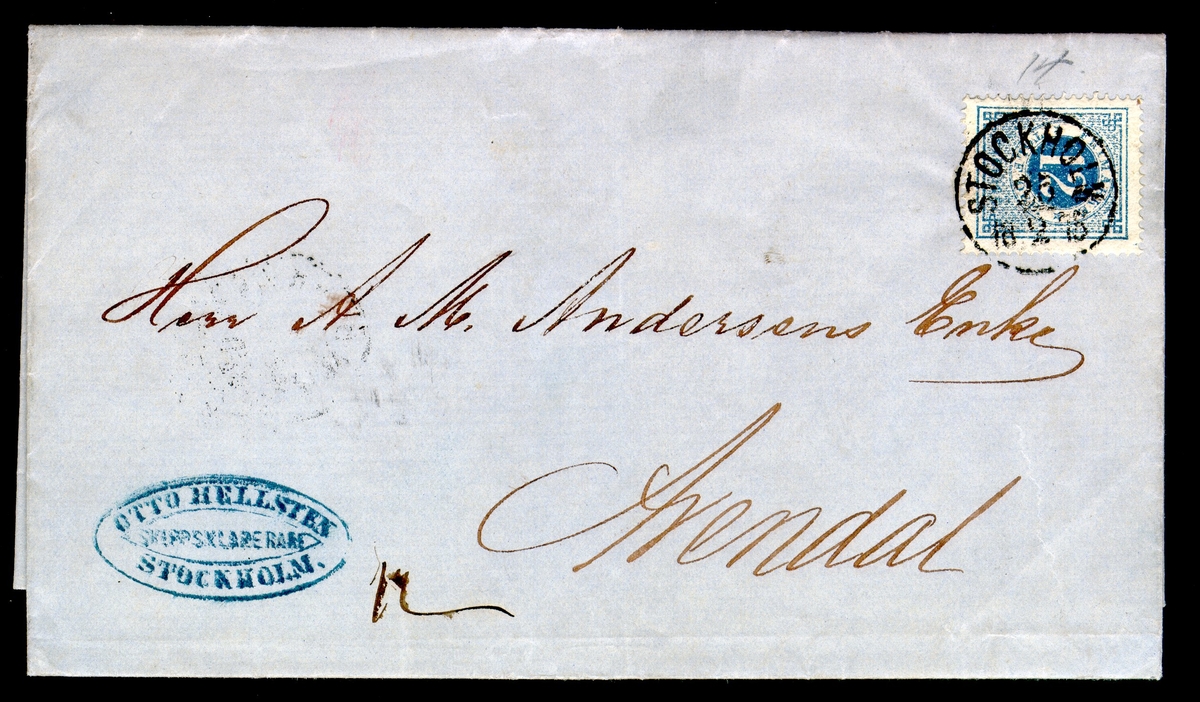 14
STOCKHOLM
12
Herr A M. Andersens Enke
Arendal
OTTO HELLSTEN
SKEPPSKLARERARE
STOCKHOLM.
12